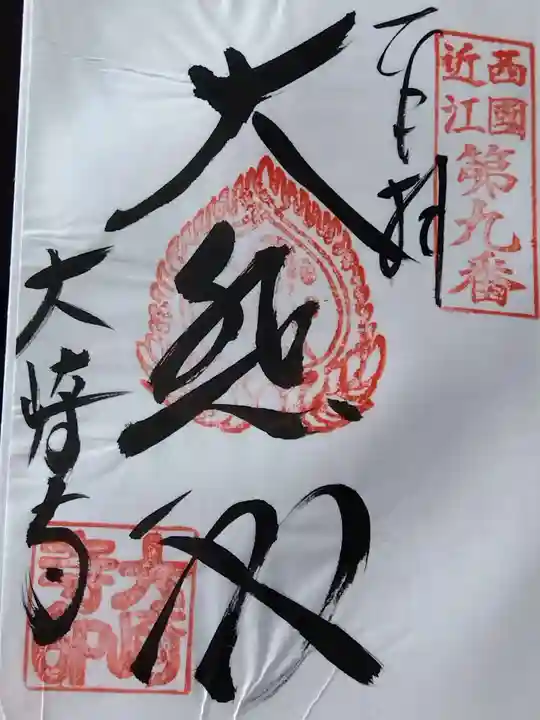 西國
近江
第九番
奉拝
大悲殿
大崎寺
大崎寺印